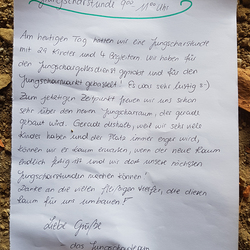 Jungscharstunde 9⁰⁰ 11⁰⁰ Uhr
Am heutigen Tag haben wir eine Jungscharstunde
mit 21 Kinder und 4 Begleitern. Wir haben für
den Jungschargottesdienst geprobt und für den
Jungscharmarkt gebastelt! Es war sehr lustig :-)
Zum jetzigen Zeitpunkt freuen wir uns schon
sehr über den neuen "Jungscharraum", der gerade
gebaut wird. Gerade deshalb, weil wir sehr viele
Kinder haben und der Platz immer enger wird,
können wir es kaum erwarten, wenn der neue Raum
endlich fertig ist und wir dort unsere nächsten
"Jungscharstunden" machen können!
Danke an die vielen fleißigen Helfer, die diesen
Raum für uns umbauen!!
Liebe Grüße
- das Jungscharteam